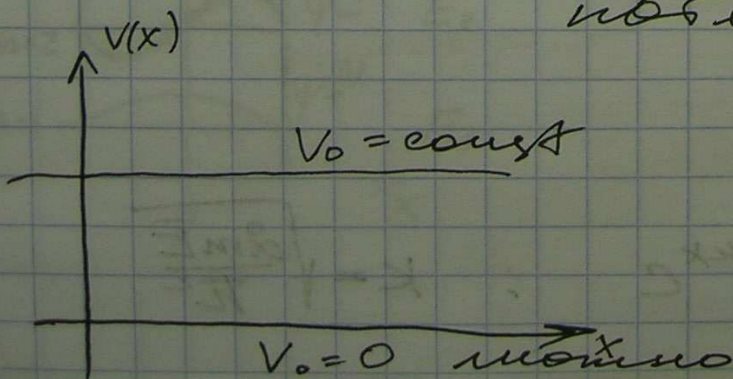 V(x)
V₀ = const
x
V₀ = 0 можно